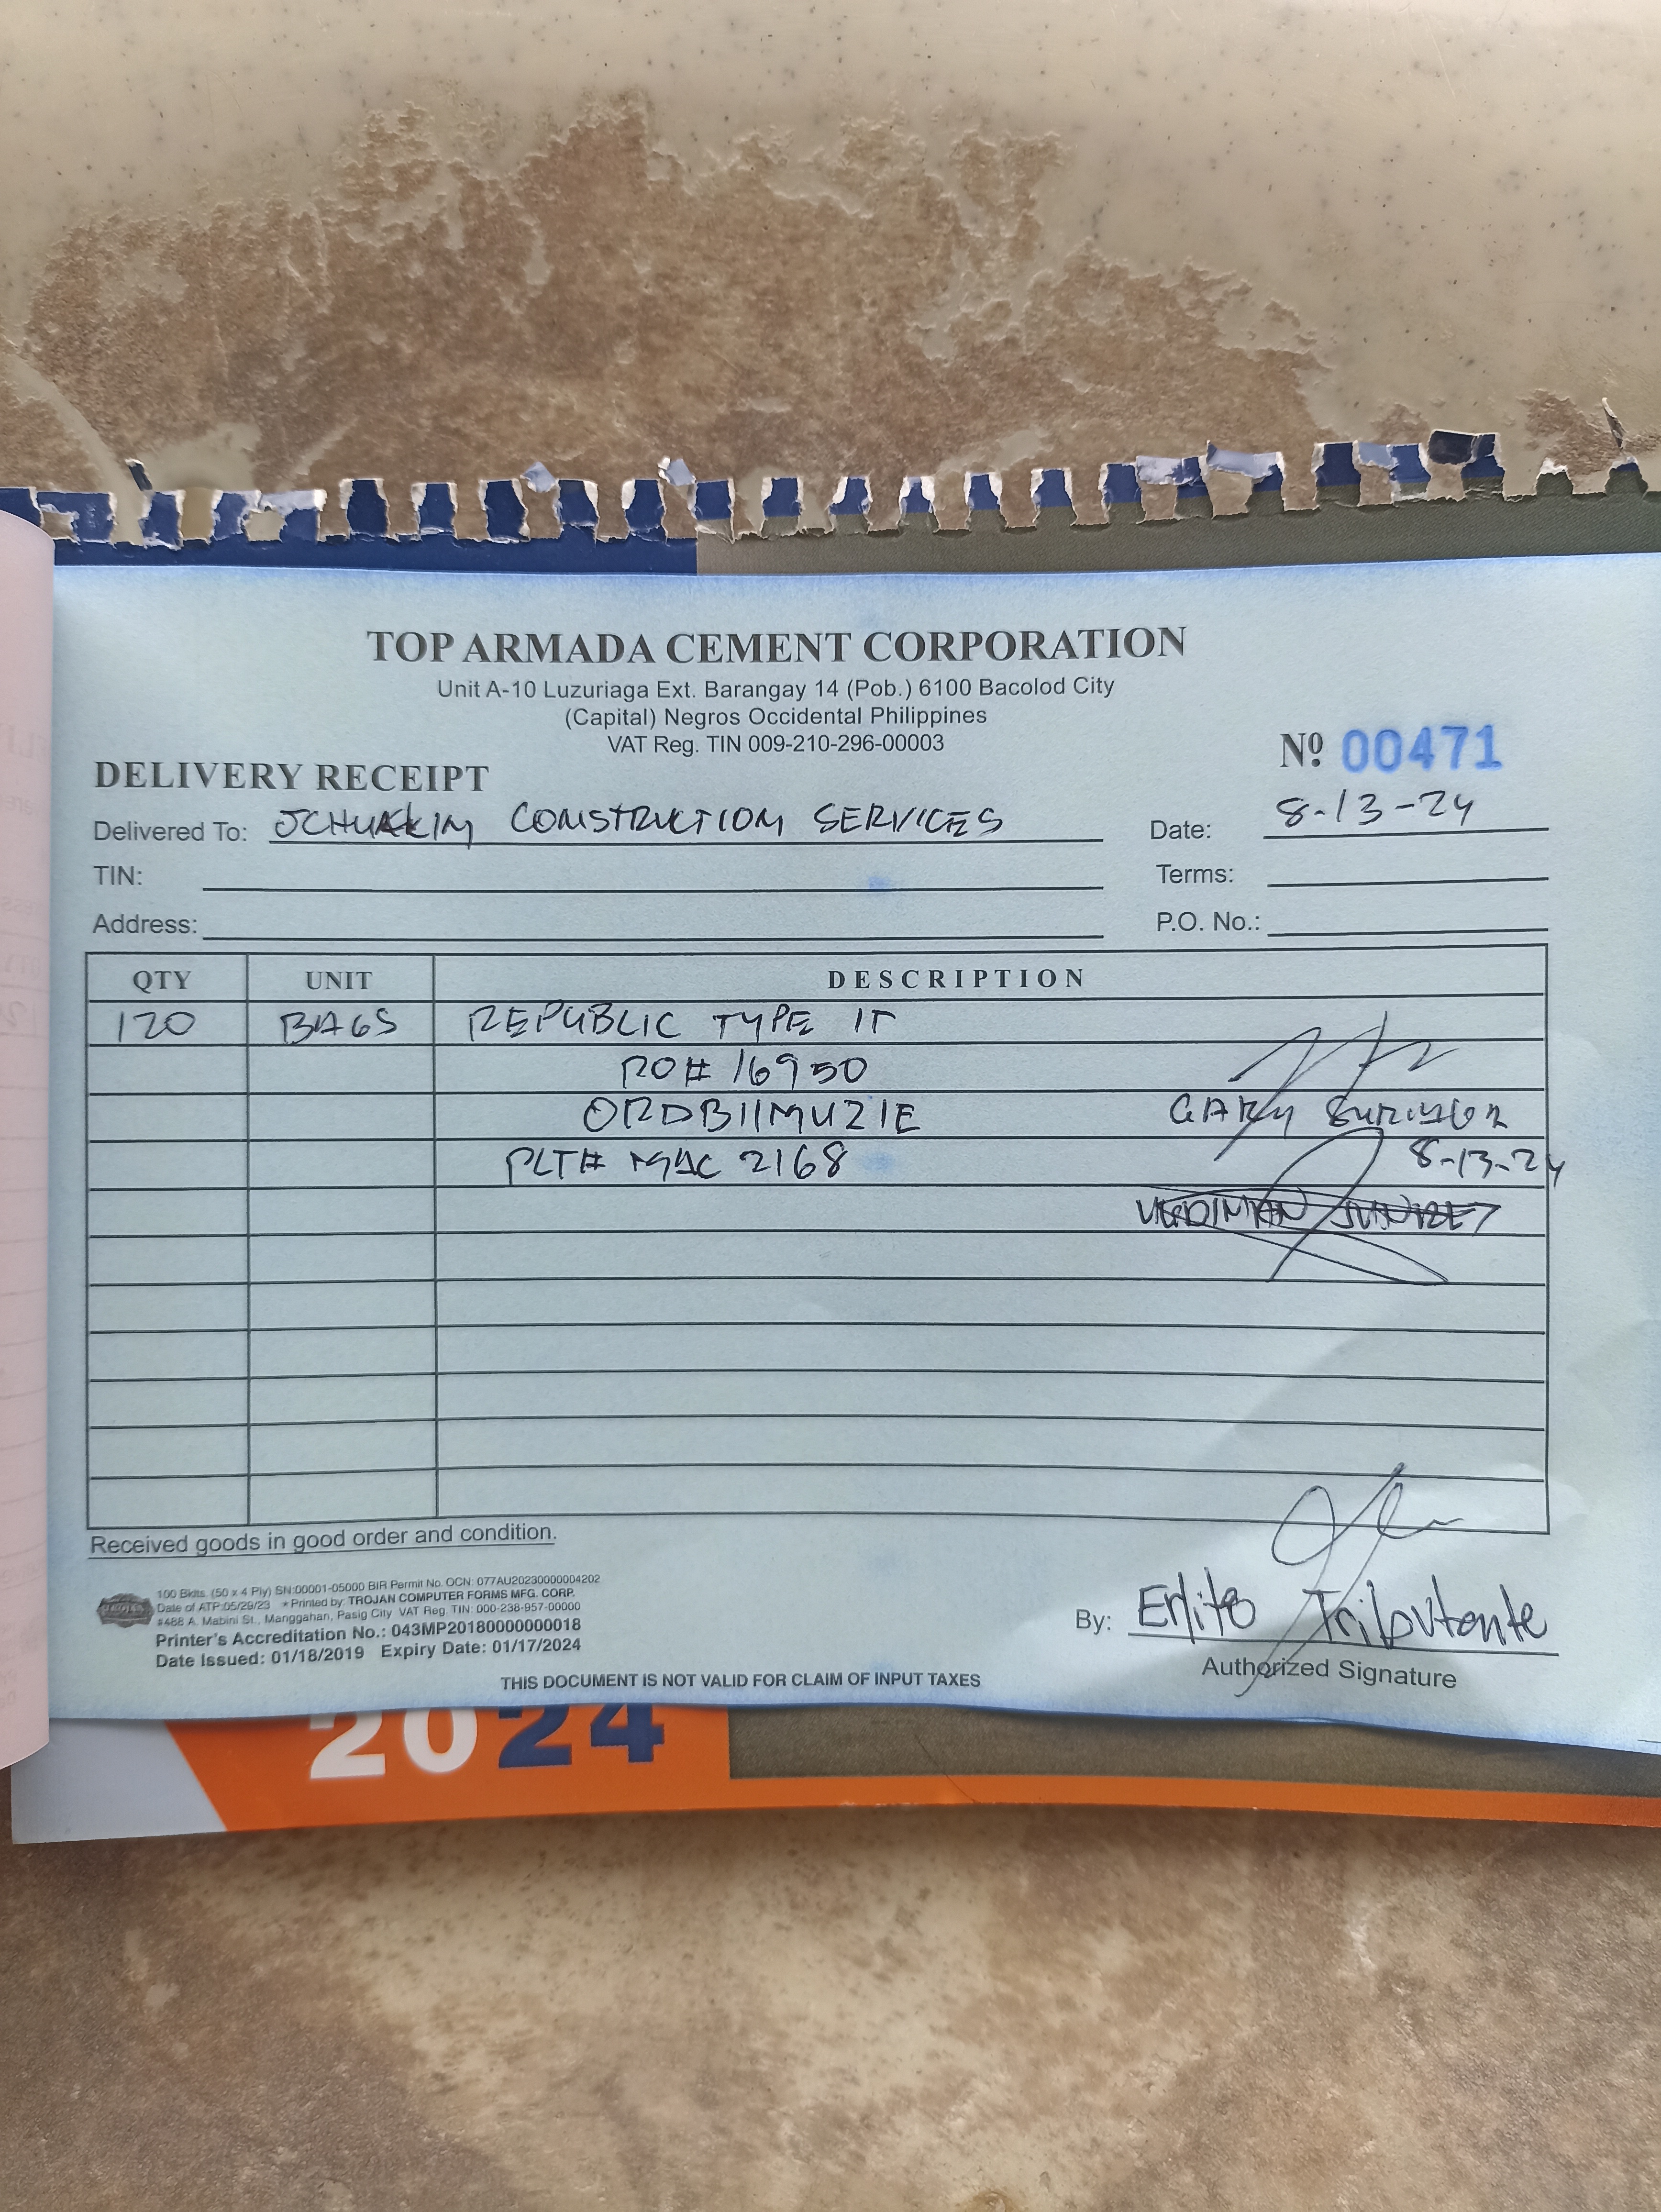 TOP ARMADA CEMENT CORPORATION
Unit A-10 Luzuriaga Ext. Barangay 14 (Pob.) 6100 Bacolod City
(Capital) Negros Occidental Philippines
VAT Reg. TIN 009-210-296-00003
Nº 00471
DELIVERY RECEIPT
Delivered To: JCHUAKIM CONSTRUCTION SERVICES
Date: 8-13-24
TIN:
Terms:
Address:
P.O. No.:
QTY UNIT DESCRIPTION
120 BAGS REPUBLIC TYPE 1T
RO# 16950
ORDB11MUZIE
GARY
PLT# MAC 2168
8-13-24
Received goods in good order and condition.
100 Bklts. (50 x 4 Ply) SN:00001-05000 BIR Permit No. OCN: 077AU20230000004202
Date of ATP:05/29/23 *Printed by: TROJAN COMPUTER FORMS MFG. CORP.
#488 A. Mabini St., Manggahan, Pasig City VAT Reg. TIN: 000-238-957-00000
Printer's Accreditation No.: 043MP20180000000018
Date Issued: 01/18/2019 Expiry Date: 01/17/2024
By: Erlito Tributante
Authorized Signature
THIS DOCUMENT IS NOT VALID FOR CLAIM OF INPUT TAXES
2024